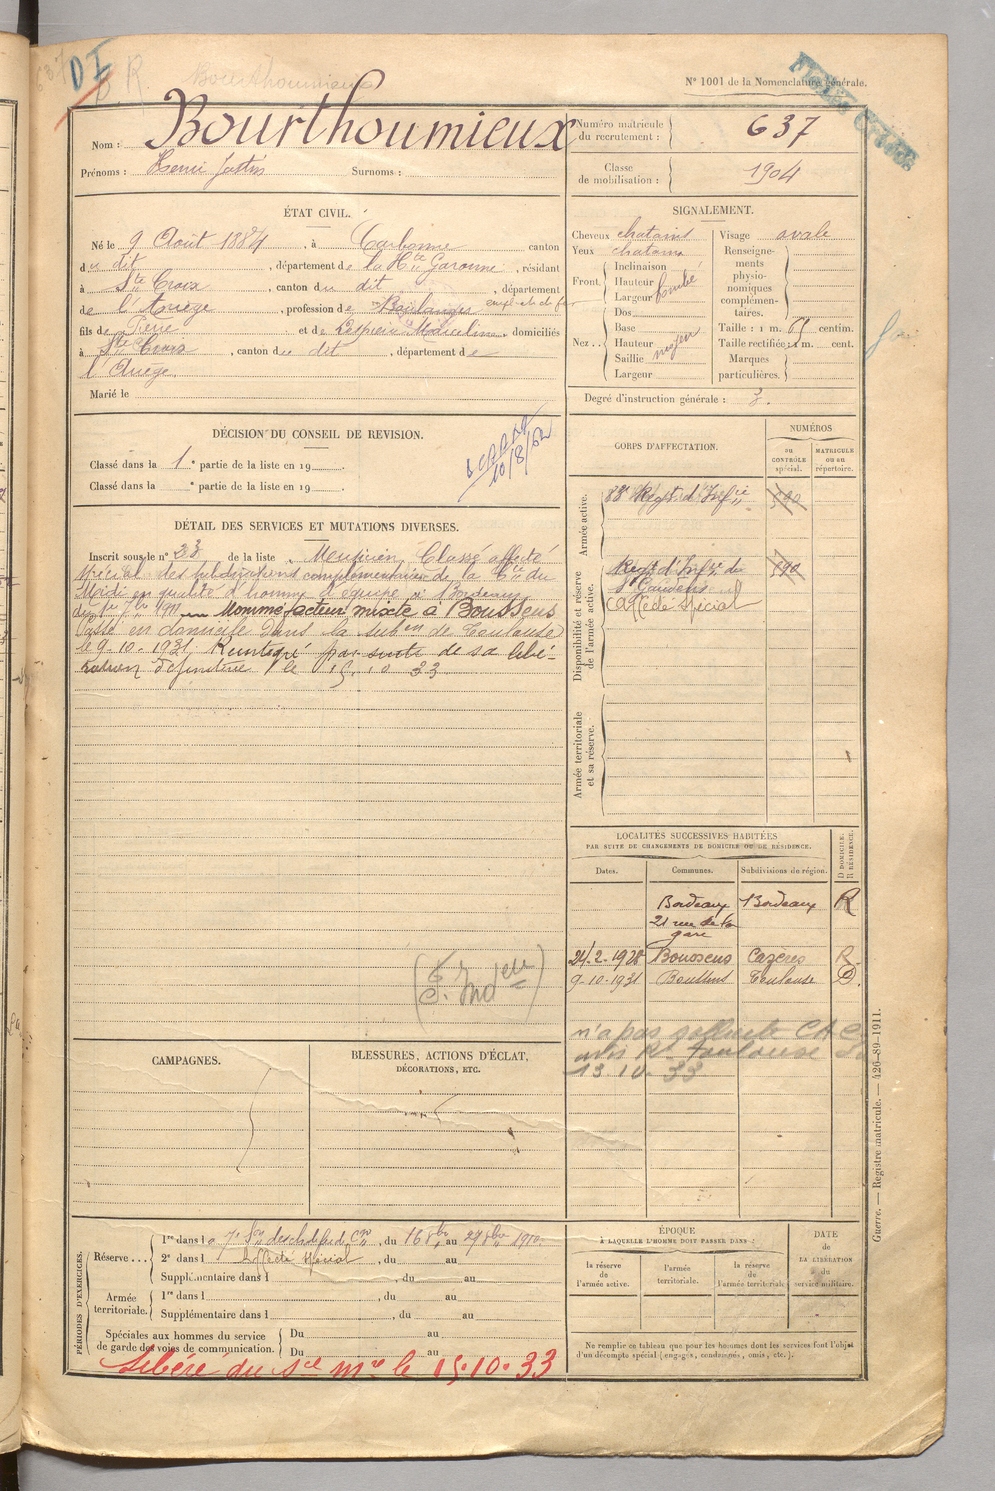 N° 1001 de la Nomenclature générale.
D I
R. Bourthoumieux
Nom : Bourthoumieux
Prénoms : Henri Justin Surnoms :
Numéro matricule du recrutement : 637
Classe de mobilisation : 1904
ÉTAT CIVIL.
Né le 9 Août 1884, à Carbonne canton
du dit, département de la Hte Garonne, résidant
à Ste Croix, canton du dit, département
de l'Ariège, profession de Boulanger
fils de Pierre et de domiciliés
à Ste Croix, canton du dit, département de
l'Ariège.
Marié le
SIGNALEMENT.
Cheveux chatains
Yeux chatains
Front. Inclinaison
Hauteur
Largeur bombé
Nez.. Dos
Base
Hauteur
Saillie moyen
Largeur
Visage ovale
Renseignements physionomiques complémentaires.
Taille : 1 m. 65 centim.
Taille rectifiée : 1 m. cent.
Marques particulières.
Degré d'instruction générale : 3.
DÉCISION DU CONSEIL DE REVISION.
Classé dans la 1e partie de la liste en 19
Classé dans la e partie de la liste en 19
10/8/62
DÉTAIL DES SERVICES ET MUTATIONS DIVERSES.
Inscrit sous le n° 23 de la liste. Musicien. Classé affecté
spécial des subdivisions complémentaires de la Cie du
Midi en qualité d'homme d'équipe à Bordeaux
du Nommé facteur mixte à Boussens
Passé en domicile dans la subon de Toulouse
le 9-10-1931. Réintégré par suite de sa libé-
ration définitive le 15.10.33
CORPS D'AFFECTATION.
NUMÉROS
au CONTRÔLE spécial.
MATRICULE ou au répertoire.
Armée active.
83e Régt d'Infie
Disponibilité et réserve de l'armée active.
Régt d'Infie de
St Gaudens
affecté spécial
Armée territoriale et sa réserve.
LOCALITÉS SUCCESSIVES HABITÉES
PAR SUITE DE CHANGEMENTS DE DOMICILE OU DE RÉSIDENCE.
Dates. Communes. Subdivisions de région. D DOMICILE. R RÉSIDENCE.
Bordeaux Bordeaux R
21 rue de la
gare
24-2-1928 Boussens Cazères R.
9-10-1931 Boussens Toulouse D.
n'a pas sollicité CAC
avis Rt Toulouse
13 10. 33
CAMPAGNES.
BLESSURES, ACTIONS D'ÉCLAT,
DÉCORATIONS, ETC.
PÉRIODES D'EXERCICES.
Réserve... 1re dans la 7e Son des ch de fer de cne, du 16 8bre au 27 8bre 1910
2e dans l Affecté Spécial, du au
Supplémentaire dans l, du au
Armée territoriale. 1re dans l, du au
Supplémentaire dans l, du au
Spéciales aux hommes du service de garde des voies de communication. Du au
Du au
Libéré du sce mre le 15.10.33
ÉPOQUE
À LAQUELLE L'HOMME DOIT PASSER DANS :
la réserve de l'armée active.
l'armée territoriale.
la réserve de l'armée territoriale
DATE de LA LIBÉRATION du service militaire.
Ne remplir ce tableau que pour les hommes dont les services font l'objet
d'un décompte spécial (engagés, condamnés, omis, etc.).
Guerre. — Registre matricule. — 426-89-1911.